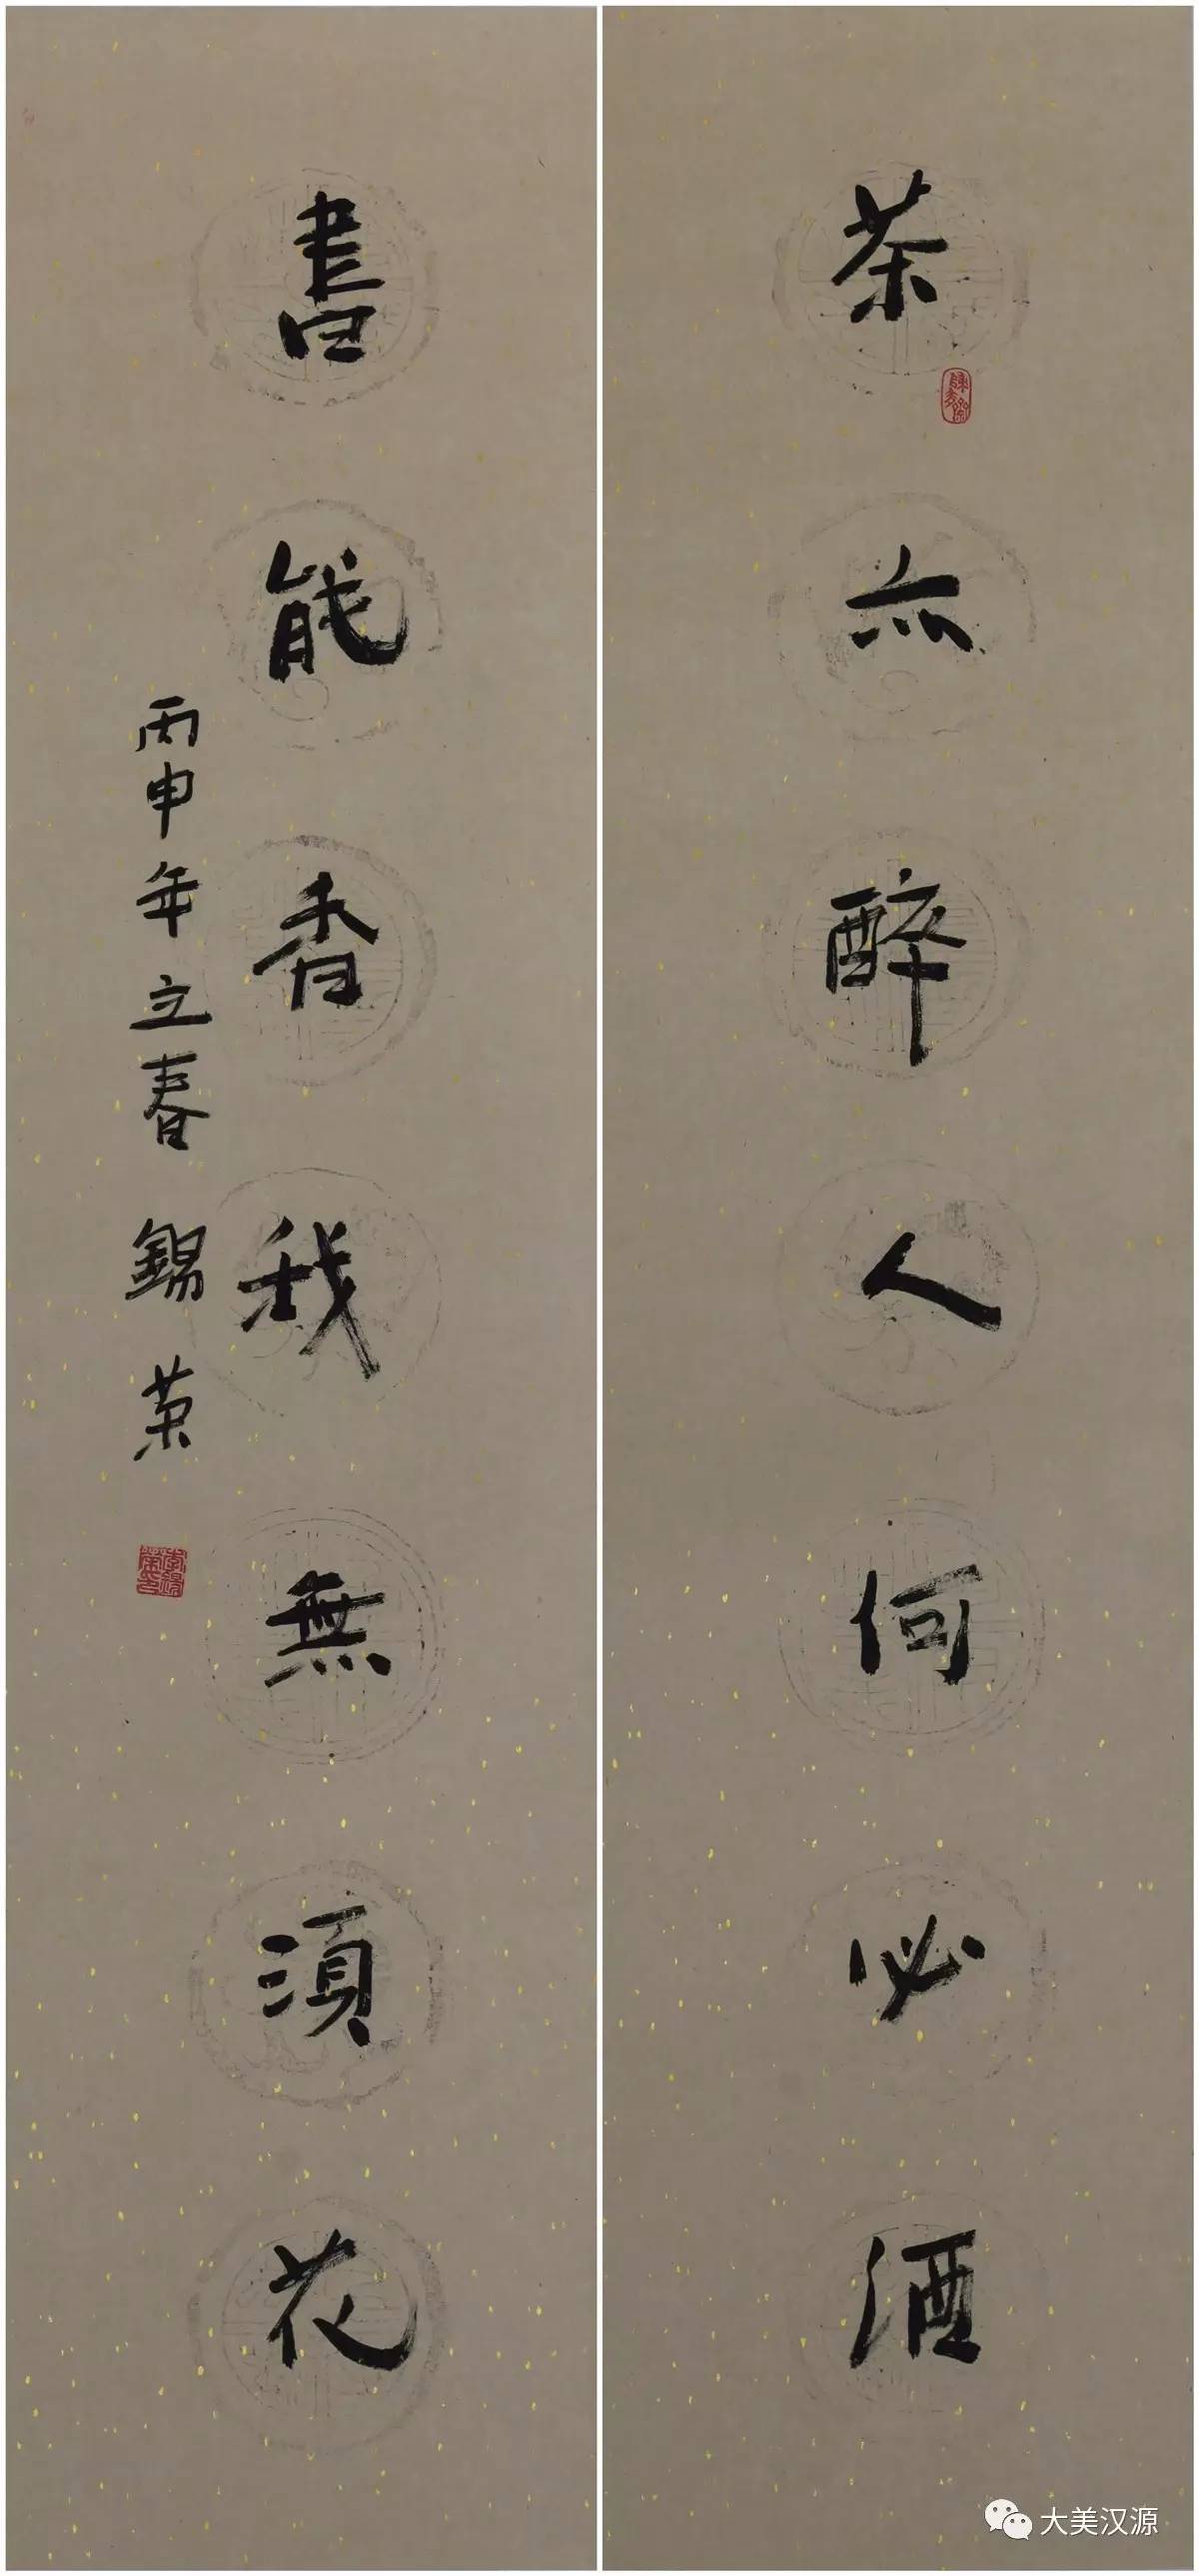 茶亦醉人何必酒
書能香我無須花
丙申年立春 錫荣
大美汉源